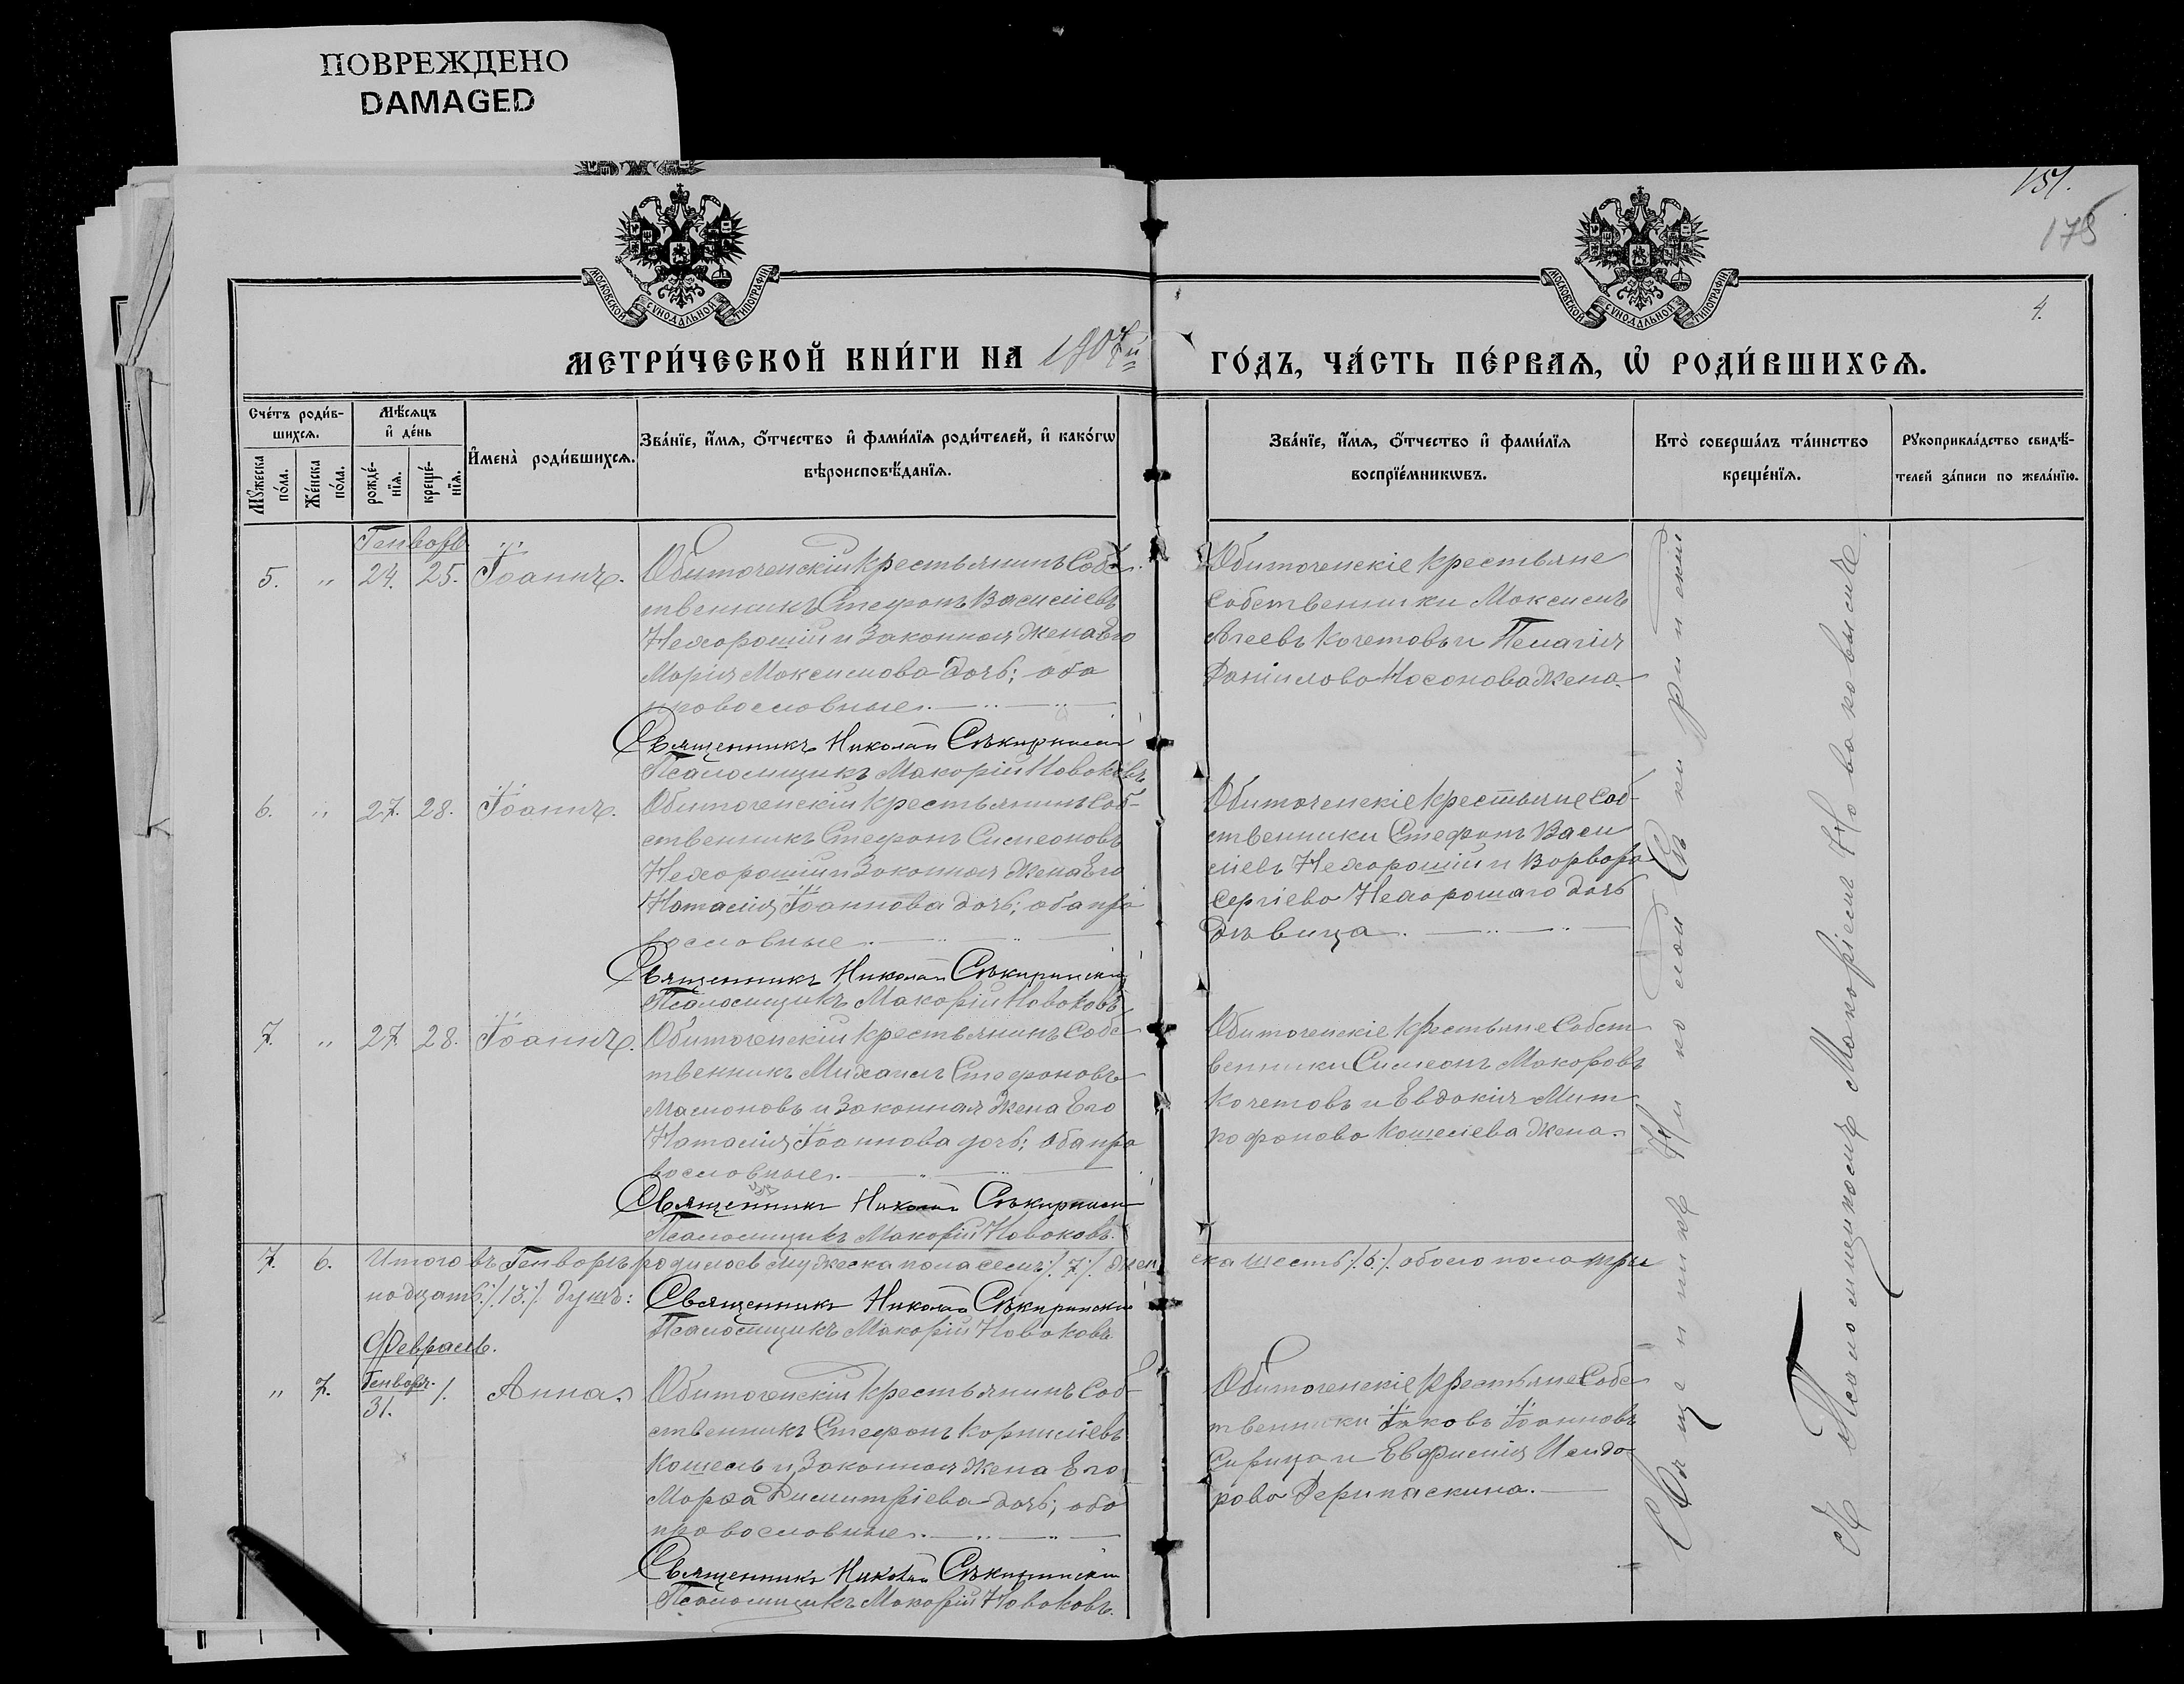 ПОВРЕЖДЕНО
DAMAGED
151.
178
4.
МОСКОВСКОЙ СѴНОДАЛЬНОЙ ТИПОГРАФІИ
МОСКОВСКОЙ СѴНОДАЛЬНОЙ ТИПОГРАФІИ
МЕТРИ́ЧЕСКОЙ КНИ́ГИ НА 1907й
ГО́ДЪ, ЧА́СТЬ ПЕ́РВАЯ, Ѡ РОДИ́ВШИХСЯ.
Сче́тъ роди́в-
шихся.
Мꙋ́жеска
по́ла.
Же́нска
по́ла.
Мѣ́сяцъ
и҆ де́нь
рожде́-
нїя.
креще́-
нїя.
И҆мена̀ роди́вшихся.
Зва́нїе, и҆́мя, ѻ҆́тчество и҆ фами́лїя роди́телей, и҆ како́гѡ
вѣроисповѣ́данїя.
Зва́нїе, и҆́мя, ѻ҆́тчество и҆ фами́лїя
воспрїе́мникѡвъ.
Кто̀ соверша́лъ та́инство
креще́нїя.
Рꙋкоприкла́дство свидѣ́-
телей за́писи по жела́нїю.
Генворь
5. „ 24. 25. Іоаннъ.
Обиточенскій крестьянинъ Собс-
твенникъ Стефанъ Василіевъ
Нехорошій и Законная жена Его
Марія Максимова дочь; оба
православные.
Священникъ Николай Сѣкиринскій
Псаломщикъ Макарій Новаковъ
Обиточенскіе крестьяне
Собственники Максимъ
Агеевъ Кочетовъ и Пелагія
Даниилова Носонова жена.
6. „ 27. 28. Іоаннъ.
Обиточенскій крестьянинъ Соб-
ственникъ Стефанъ Симеоновъ
Нехорошій и Законная жена Его
Наталія Іоаннова дочь; оба пра
вославные.
Священникъ Николай Сѣкиринскій
Псаломщикъ Макарій Новаковъ
Обиточенскіе крестьяне Соб-
ственники Стефанъ Васи
ліевъ Нехорошій и Варвара
Сергіева Нехорошаго дочь
дѣвица.
7. „ 27. 28. Іоаннъ.
Обиточенскій крестьянинъ Собс
твенникъ Михаилъ Стефановъ
Масноковъ и Законная жена Его
Наталія Іоаннова дочь; оба пра
вославные.
Священникъ Николай Сѣкиринскій
Псаломщикъ Макарій Новаковъ.
Обиточенскіе крестьяне Собст
венники Симеонъ Макаровъ
Кочетовъ и Евдокія Мит
рофанова Кошелева жена.
7. 6. Итого въ Генворѣ родилось мужеска пола семь /. 7 /. жен
ска шесть /. 6 /. обоего пола три
надцать /. 13 /. душъ:
Священникъ Николай Сѣкиринскій
Псаломщикъ Макарій Новаковъ
Февраль.
„ 7. Генворь. 31. 1. Анна.
Обиточенскій крестьянинъ Соб-
ственникъ Стефанъ Корниліевъ
Кошель и Законная жена Его
Марѳа Димитріева дочь; оба
православные.
Священникъ Николай Сѣкиринскій
Псаломщикъ Макарій Новаковъ.
Обиточенскіе крестьяне Собс
твенники Іаковъ Іоанновъ
Сирица и Евфимія Исидо
рова Дерипаскина.
Священникъ Николай Сѣкиринскій
съ Псаломщикомъ Макаріемъ Новаковымъ.